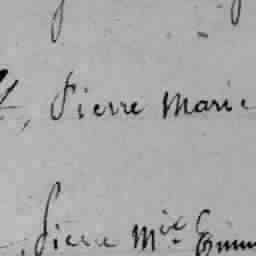 , Pierre Marie
Pierre Mie